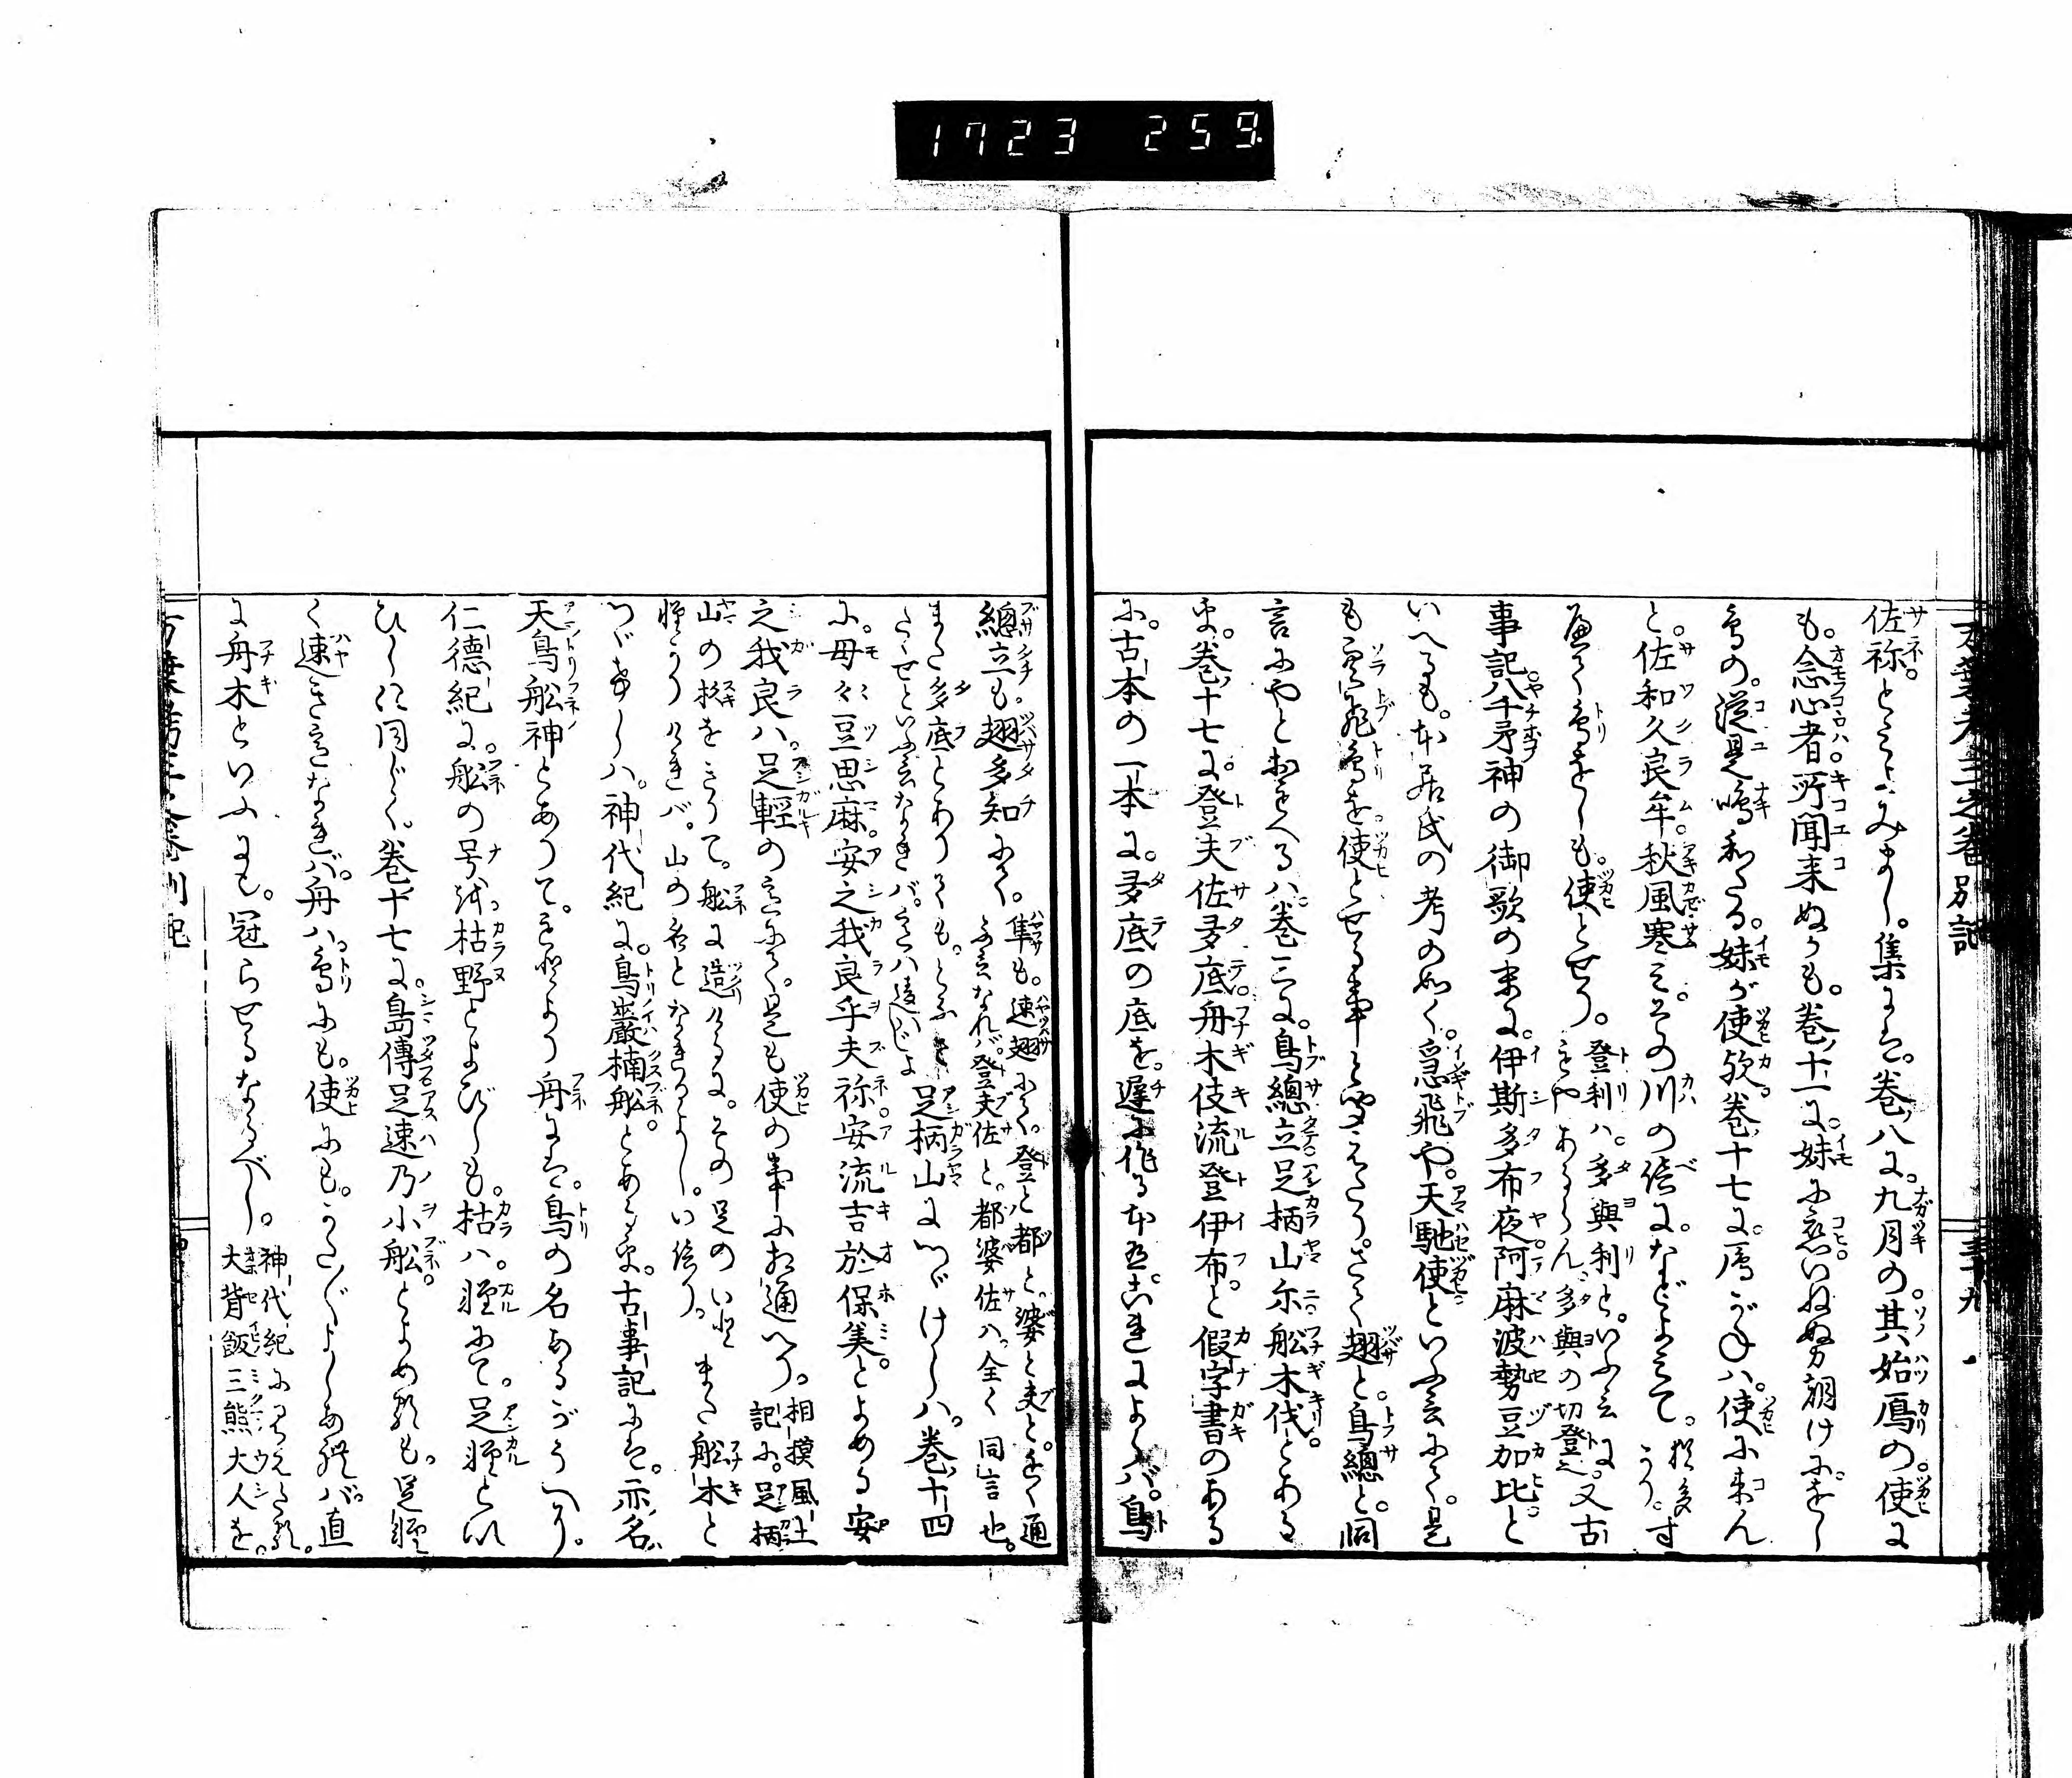 1723 259
萬葉考三之巻別記
三十九
佐祢。とこそよみまし。集には。巻八に。九月の。其始鴈の。使に
も。念心者。所聞来ぬかも。巻十一に。妹に恋。いねぬ朝けに。をし
鳥の。従是鳴和たる。妹が使歟。巻十七に。鴈がねハ。使に来ん
と。佐和久良牟。秋風寒み。その川の倍に。などよみて。猶多かり。す
べて鳥をしも。使とせり。登利ハ。多與利と。いふ言にもやあるらん、多與の切登也。又古
事記。八千矛神の御歌の末に。伊斯多布夜。阿麻波勢豆加比。と
いへるも。本居氏の考の如く。急飛や。天馳使といふ言にて。是
も虚飛鳥を使とせる事と聞えたり。さて翅と。鳥總と。同
言にやとおもへるハ。巻三に。鳥總立足柄山尓船木伐。とある
を。巻十七に。登夫佐多底。舟木伎流登伊布。と假字書のある
に。古本の一本に。多底の底を。遅に作る本あり。これによらバ。鳥
總立も。翅多知にて。隼も。速翅にて。登と都と。婆と夫と。近く通ふ言なれバ。登夫佐と。都婆佐ハ。全く同言也。
また多底とありても。とぶさたゝせといふ言なれバ。意ハ違ハじよ 足柄山につゞけしハ。巻十四
に。母々豆思麻。安之我良乎夫祢。安流吉於保美。とよめる安
之我良ハ。足輕の意にて。是も使の事に相通へり。相摸風土記に。足柄
山の杉をきりて。船に造りけるに。その足のいと軽かりければ。山の名となれるよし。いへり。また船木と
つゞけしハ。神代紀に。鳥巌樟船。とあるを。古事記には。亦名
天鳥船神とありて。もとより舟には。鳥の名あるがうへに。
仁徳紀に。船の号を枯野とよびしも。枯ハ。軽にて。足軽とい
ひしに同じく。巻十七に。島傳足速乃小船。とよめるも。足軽
く速き意なれバ。舟ハ。鳥にも。使にも。かた〴〵よしあれバ。直
に舟木といふにも。冠らせるなるべし。神代紀にみえたる。大背飯三熊大人を。